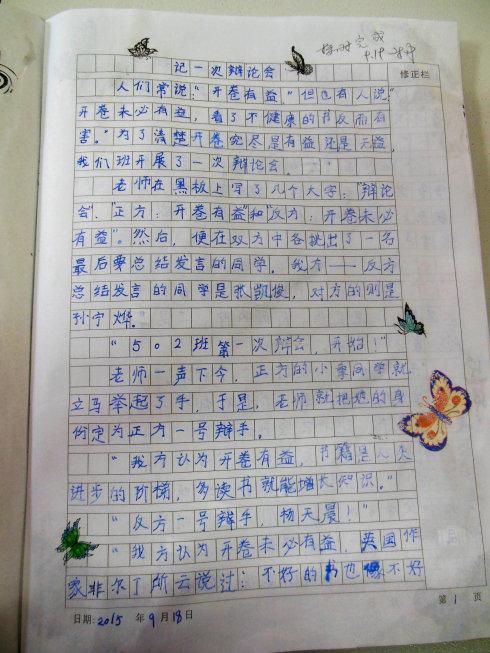 按时完成
9.19
记一次辩论会
修正栏
人们常说:"开卷有益。"但也有人说:"
开卷未必有益,看了不健康的书反而有
害。"为了清楚开卷究尽是有益还是无益,
我们班开展了一次辩论会。
老师在黑板上写了几个大字:"辩论
会"、"正方:开卷有益"和"反方:开卷未必
有益"。然后,便在双方中各挑出了一名
最后要总结发言的同学。我方——反方
总结发言的同学是张凯俊,对方的则是
孙宇烨。
"502班第一次辩会,开始!"
老师一声下令,正方的小季同学就
立马举起了手,于是,老师就把她的身
份定为正方一号辩手。
"我方认为开卷有益,书籍是人类
进步的阶梯,多读书就能增长知识。"
"反方一号辩手,杨天晨!"
"我方认为开卷未必有益,英国作
家菲尔丁所云说过:不好的书也像不好
日期:2015年9月18日
第1页